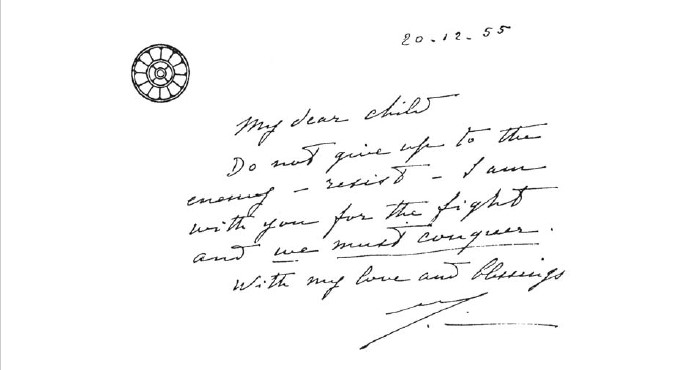 20.12.55
My dear child
Do not give up to the
enemy – resist – I am
with you for the fight
and we must conquer.
With my love and blessings